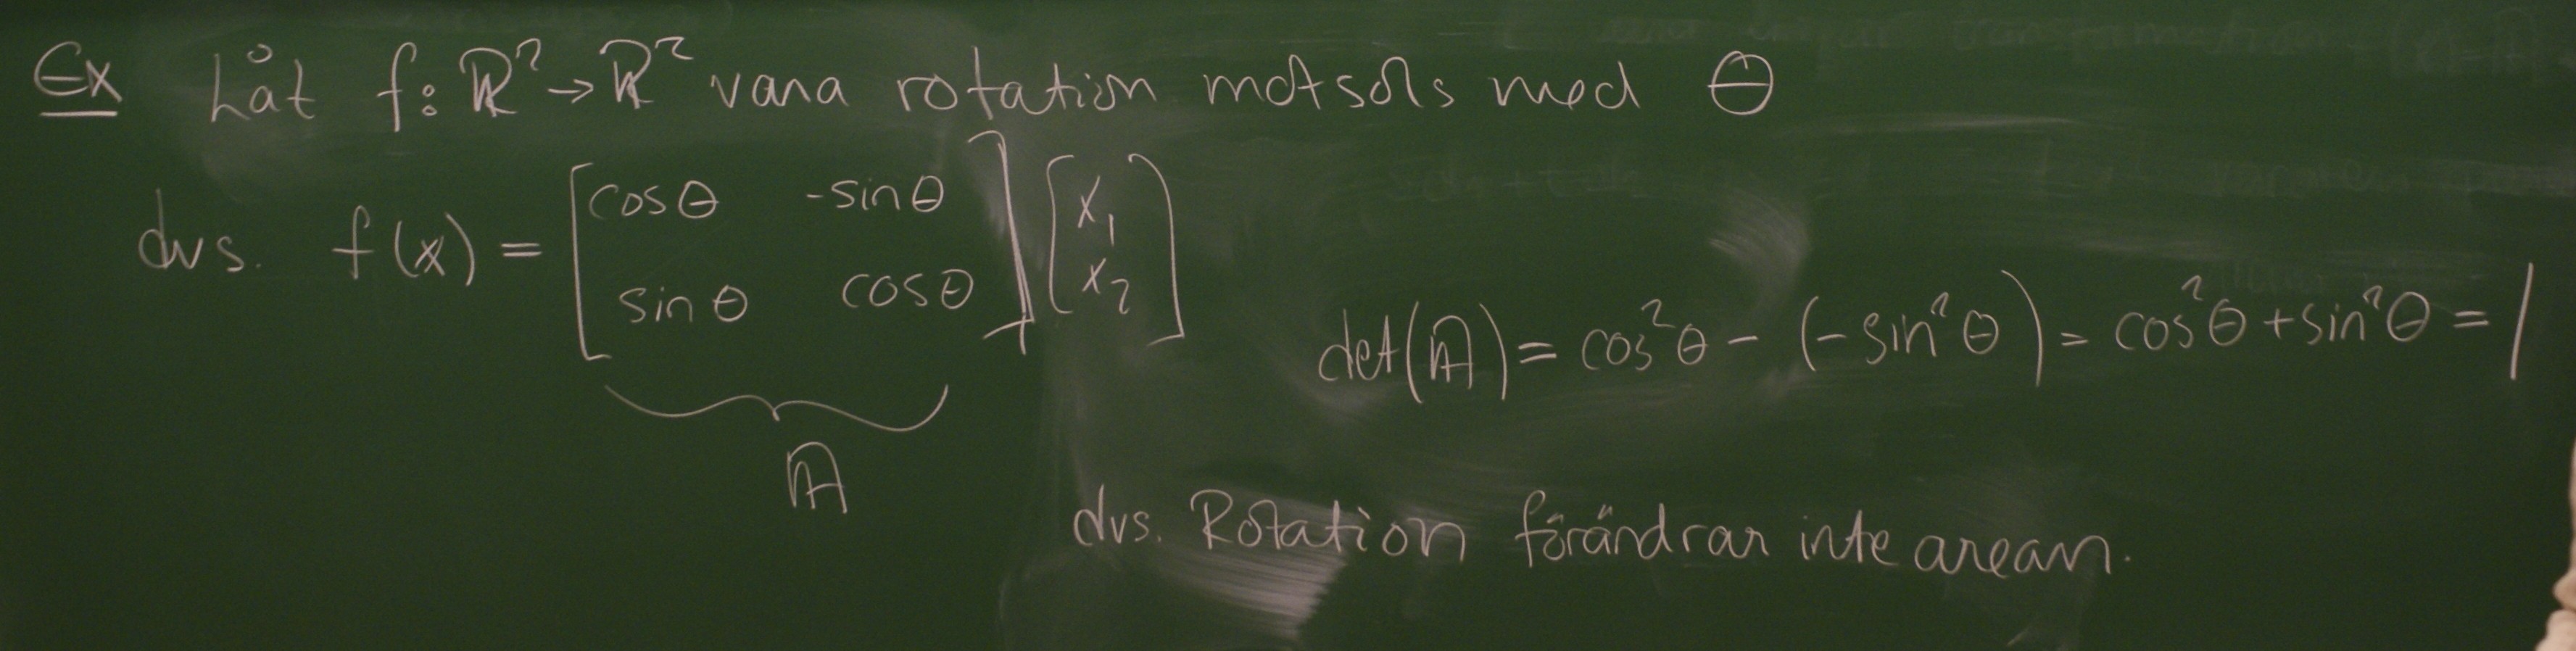 Ex Låt f: ℝ² → ℝ² vara rotation motsols med θ
dvs. f(x) = [cosθ -sinθ; sinθ cosθ] [x₁; x₂]
A
det(A) = cos²θ - (-sin²θ) = cos²θ + sin²θ = 1
dvs. Rotation förändrar inte arean.